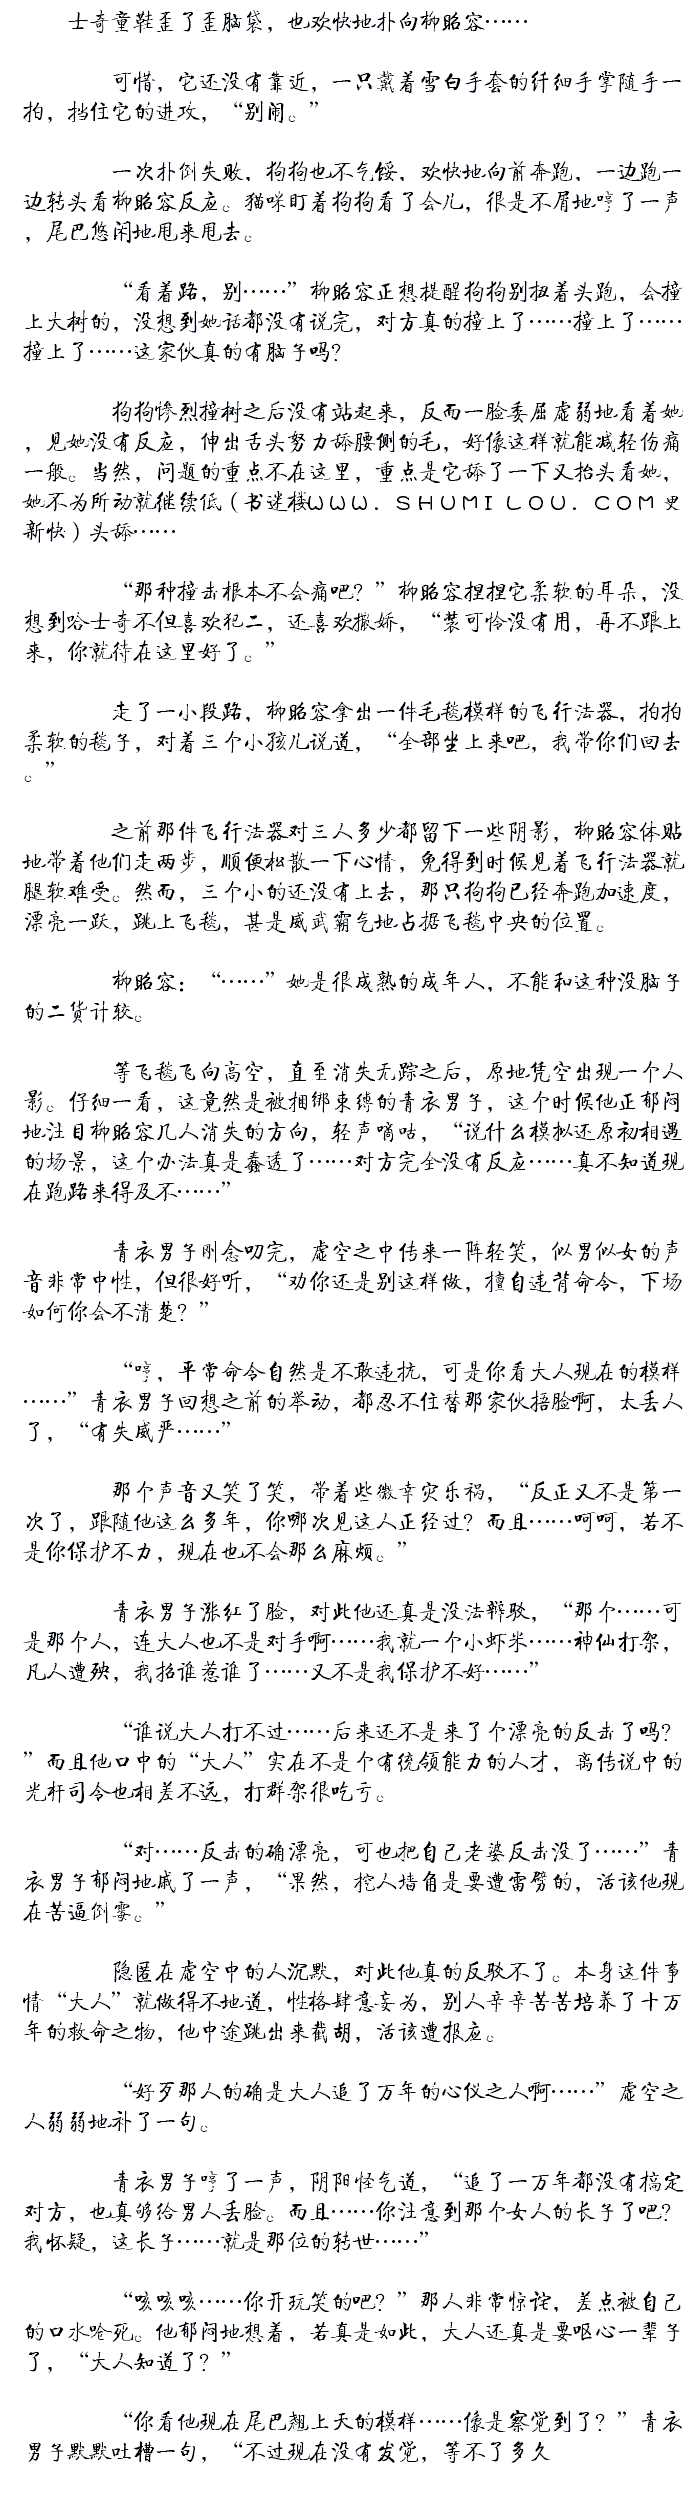 士奇童鞋歪了歪脑袋，也欢快地扑向柳昭容……
可惜，它还没有靠近，一只戴着雪白手套的纤细手掌随手一
拍，挡住它的进攻，“别闹。”
一次扑倒失败，狗狗也不气馁，欢快地向前奔跑，一边跑一
边转头看柳昭容反应。猫咪盯着狗狗看了会儿，很是不屑地哼了一声
，尾巴悠闲地甩来甩去。
“看着路，别……”柳昭容正想提醒狗狗别扭着头跑，会撞
上大树的，没想到她话都没有说完，对方真的撞上了……撞上了……
撞上了……这家伙真的有脑子吗？
狗狗惨烈撞树之后没有站起来，反而一脸委屈虚弱地看着她
，见她没有反应，伸出舌头努力舔腰侧的毛，好像这样就能减轻伤痛
一般。当然，问题的重点不在这里，重点是它舔了一下又抬头看她，
她不为所动就继续低（书迷楼ＷＷＷ．ＳＨＵＭＩＬＯＵ．ＣＯＭ更
新快）头舔……
“那种撞击根本不会痛吧？”柳昭容捏捏它柔软的耳朵，没
想到哈士奇不但喜欢犯二，还喜欢撒娇，“装可怜没有用，再不跟上
来，你就待在这里好了。”
走了一小段路，柳昭容拿出一件毛毯模样的飞行法器，拍拍
柔软的毯子，对着三个小孩儿说道，“全部坐上来吧，我带你们回去
。”
之前那件飞行法器对三人多少都留下一些阴影，柳昭容体贴
地带着他们走两步，顺便松散一下心情，免得到时候见着飞行法器就
腿软难受。然而，三个小的还没有上去，那只狗狗已经奔跑加速度，
漂亮一跃，跳上飞毯，甚是威武霸气地占据飞毯中央的位置。
柳昭容：“……”她是很成熟的成年人，不能和这种没脑子
的二货计较。
等飞毯飞向高空，直至消失无踪之后，原地凭空出现一个人
影。仔细一看，这竟然是被捆绑束缚的青衣男子，这个时候他正郁闷
地注目柳昭容几人消失的方向，轻声嘀咕，“说什么模拟还原初相遇
的场景，这个办法真是蠢透了……对方完全没有反应……真不知道现
在跑路来得及不……”
青衣男子刚念叨完，虚空之中传来一阵轻笑，似男似女的声
音非常中性，但很好听，“劝你还是别这样做，擅自违背命令，下场
如何你会不清楚？”
“哼，平常命令自然是不敢违抗，可是你看大人现在的模样
……”青衣男子回想之前的举动，都忍不住替那家伙捂脸啊，太丢人
了，“有失威严……”
那个声音又笑了笑，带着些微幸灾乐祸，“反正又不是第一
次了，跟随他这么多年，你哪次见这人正经过？而且……呵呵，若不
是你保护不力，现在也不会那么麻烦。”
青衣男子涨红了脸，对此他还真是没法辩驳，“那个……可
是那个人，连大人也不是对手啊……我就一个小虾米……神仙打架，
凡人遭殃，我招谁惹谁了……又不是我保护不好……”
“谁说大人打不过……后来还不是来了个漂亮的反击了吗？
”而且他口中的“大人”实在不是个有统领能力的人才，离传说中的
光杆司令也相差不远，打群架很吃亏。
“对……反击的确漂亮，可也把自己老婆反击没了……”青
衣男子郁闷地戚了一声，“果然，挖人墙角是要遭雷劈的，活该他现
在苦逼倒霉。”
隐匿在虚空中的人沉默，对此他真的反驳不了。本身这件事
情“大人”就做得不地道，性格肆意妄为，别人辛辛苦苦培养了十万
年的救命之物，他中途跳出来截胡，活该遭报应。
“好歹那人的确是大人追了万年的心仪之人啊……”虚空之
人弱弱地补了一句。
青衣男子哼了一声，阴阳怪气道，“追了一万年都没有搞定
对方，也真够给男人丢脸。而且……你注意到那个女人的长子了吧？
我怀疑，这长子……就是那位的转世……”
“咳咳咳……你开玩笑的吧？”那人非常惊诧，差点被自己
的口水呛死。他郁闷地想着，若真是如此，大人还真是要呕心一辈子
了，“大人知道了？”
“你看他现在尾巴翘上天的模样……像是察觉到了？”青衣
男子默默吐槽一句，“不过现在没有发觉，等不了多久